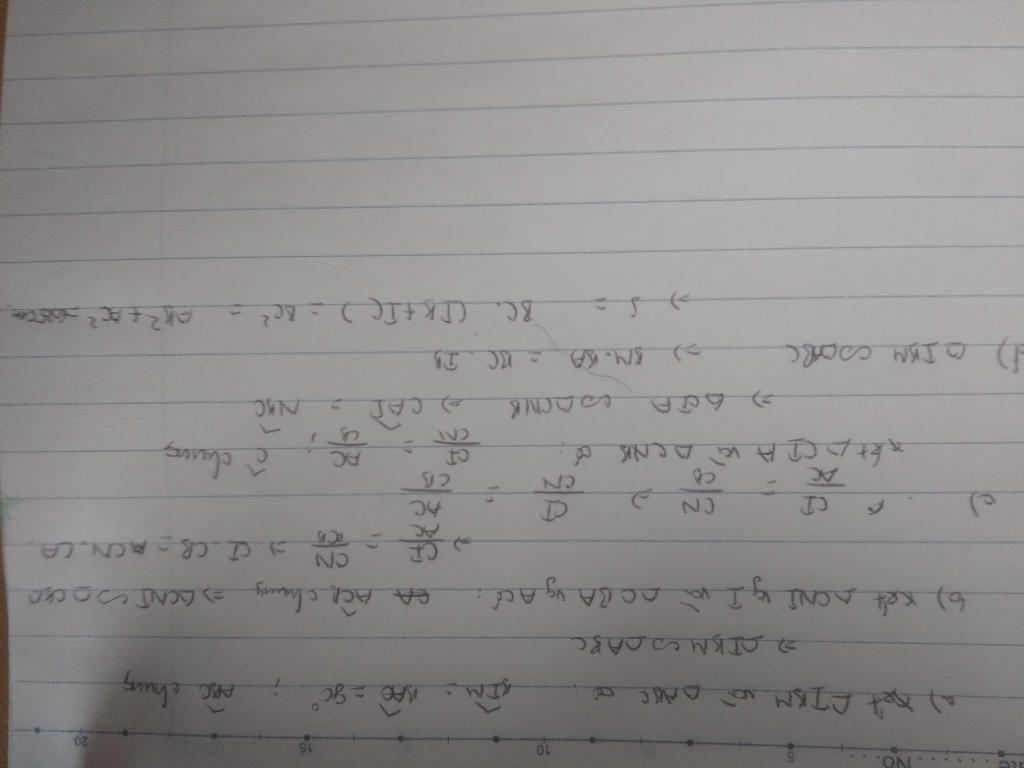 No.
5 10 15 20
a) Xét △IBM và △ABC có: BIM = BAC = 90°; ABC chung
⇒ △IBM ∽ △ABC
b) Xét △CNI vg I và △CBA vg A có: ACB chung ⇒ △CNI ∽ △CBA
⇒ CI/AC = CN/CB ⇒ CI.CB = CN.CA
c) CI/AC = CN/CB ⇒ CI/CN = AC/CB
xét △CIA và △CNB có: CI/CN = AC/CB; C chung
⇒ △CIA ∽ △CNB ⇒ CAI = NBC
d) △IBM ∽ △ABC ⇒ BM.BA = BC.IB
⇒ S = BC.(IB+IC) = BC² = AB²+AC²